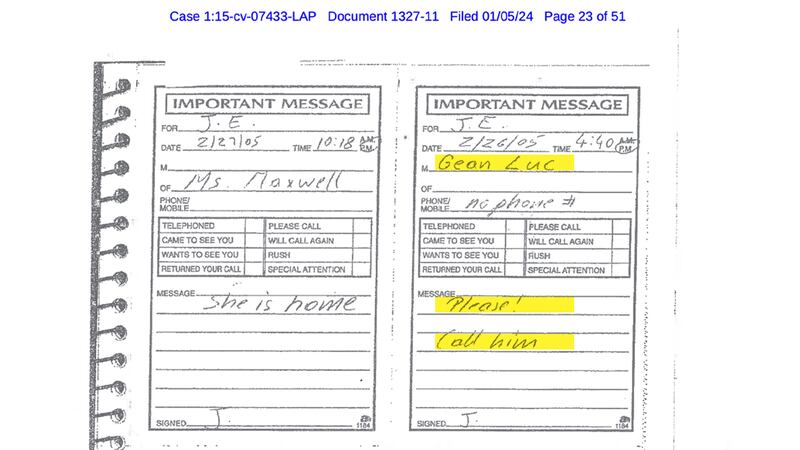 Case 1:15-cv-07433-LAP Document 1327-11 Filed 01/05/24 Page 23 of 51
IMPORTANT MESSAGE
FOR J.E.
DATE 2/27/05 TIME 10:18 A.M. P.M.
M
OF Ms. Maxwell
PHONE/
MOBILE
TELEPHONED PLEASE CALL
CAME TO SEE YOU WILL CALL AGAIN
WANTS TO SEE YOU RUSH
RETURNED YOUR CALL SPECIAL ATTENTION
MESSAGE
She is home
SIGNED J.
1184
IMPORTANT MESSAGE
FOR J.E.
DATE 2/26/05 TIME 4:40 A.M. P.M.
M Gean Luc
OF
PHONE/
MOBILE no phone #
TELEPHONED PLEASE CALL
CAME TO SEE YOU WILL CALL AGAIN
WANTS TO SEE YOU RUSH
RETURNED YOUR CALL SPECIAL ATTENTION
MESSAGE
Please!
Call him
SIGNED J.
1184